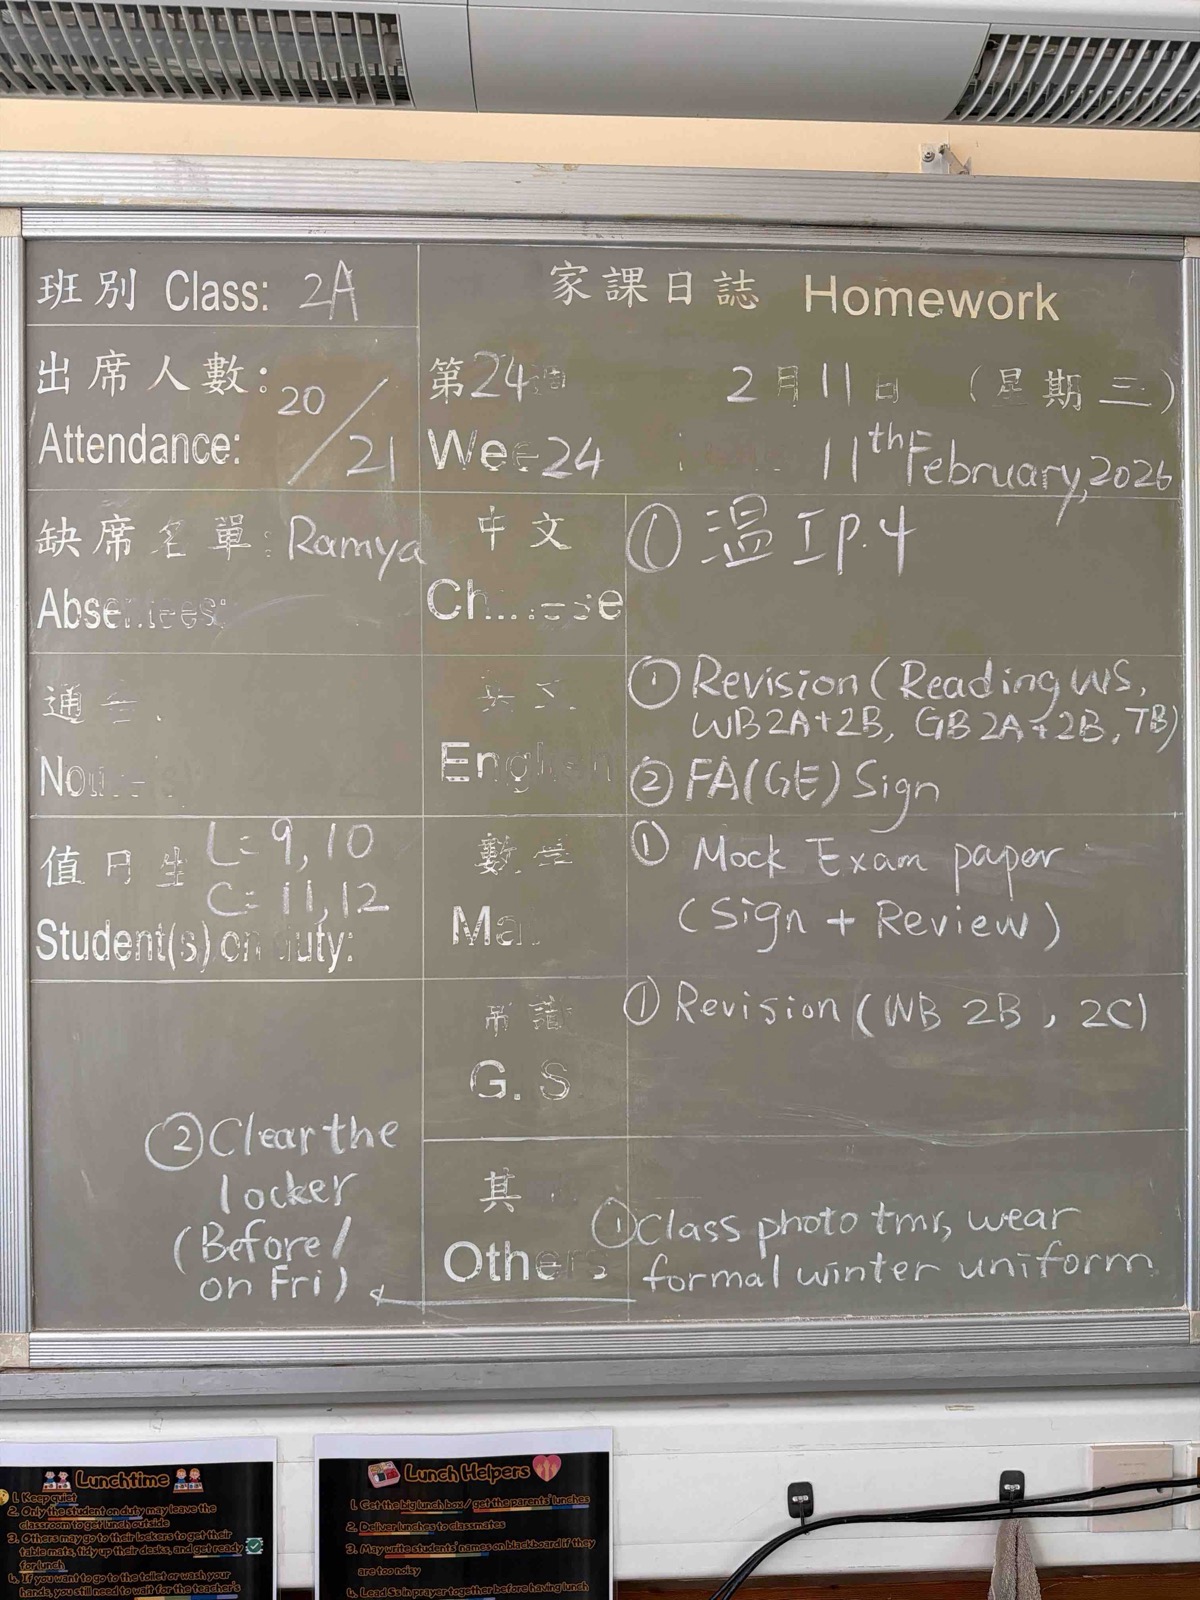 班別 Class: 2A
家課日誌 Homework
出席人數: 20/21
Attendance:
第24週 2月11日 (星期三)
Wee 24 11th February, 2026
缺席名單: Ramya
Absentees:
中文
Chinese
① 溫 工 P.4
通告
英文
English
① Revision (Reading WS,
WB 2A+2B, GB 2A+2B, TB)
② FA(GE) Sign
值日生 L: 9, 10
C: 11, 12
Student(s) on duty:
數學
Ma
① Mock Exam paper
(Sign + Review)
常識
G.S
① Revision (WB 2B, 2C)
其
Others
① Class photo tmr, wear
formal winter uniform
② Clear the
locker
(Before/
on Fri)
Lunchtime
1. Keep quiet
2. Only the student on duty may leave the
classroom to get lunch outside
3. Others may go to their lockers to get their
table mats, tidy up their desks, and get ready
for lunch
4. If you want to go to the toilet or wash your
hands, you still need to wait for the teacher's
Lunch Helpers
1. Get the big lunch box / get the parents' lunches
2. Deliver lunches to classmates
3. May write students' names on blackboard if they
are too noisy
4. Lead Ss in prayer together before having lunch